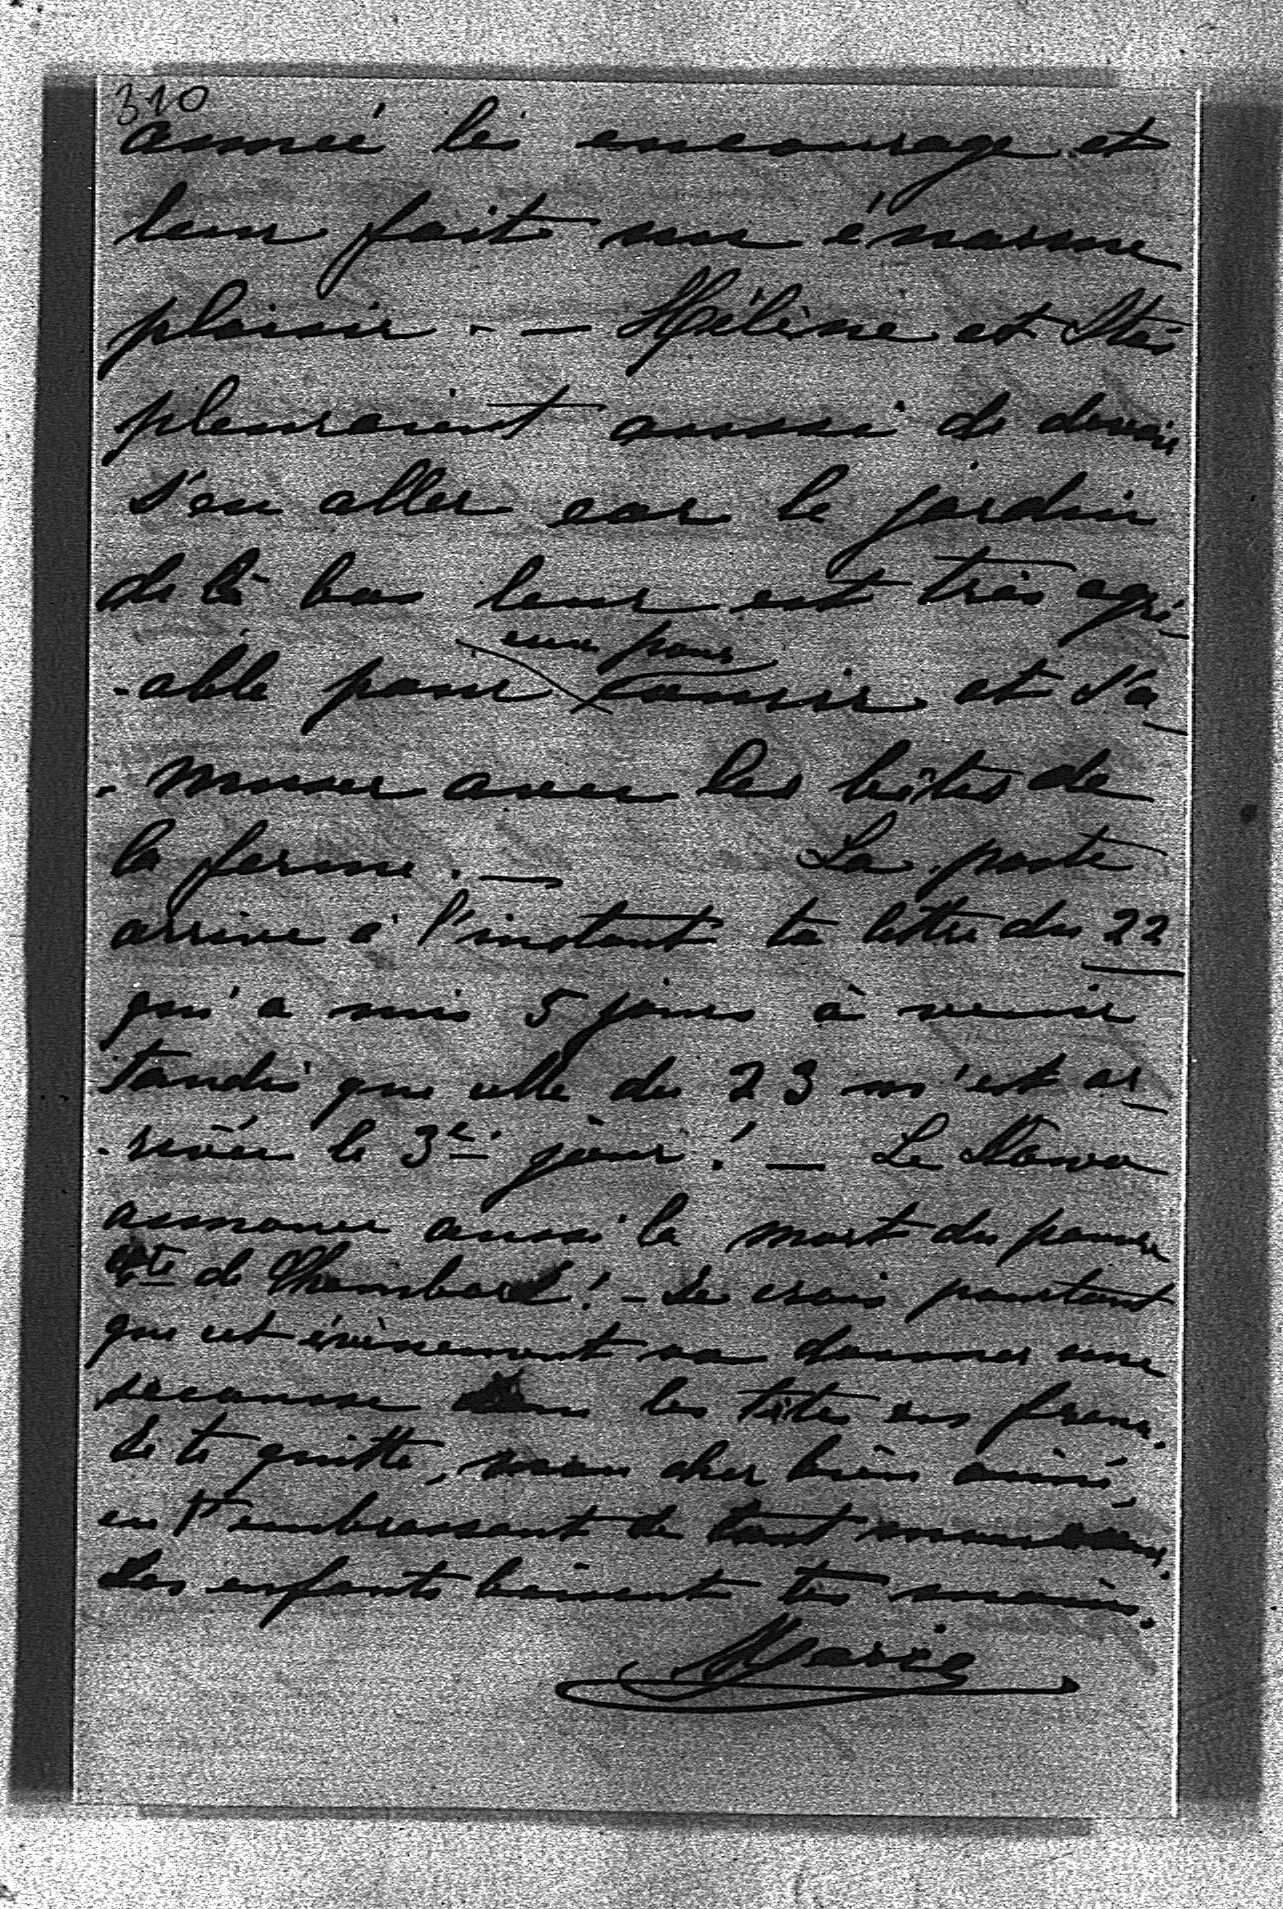 310
année les encourage et
leur fait un énorme
plaisir. - — Hélène et Stas
pleuraient aussi de devoir
s'en aller car le jardin
de là bas leur est très agré-
-able pour
eux pour
courir et s'a-
-muser avec les bêtes de
la ferme. — La poste
arrive à l'instant ta lettre du 22
qui a mis 5 jours à venir
tandis que celle du 23 m'est ar-
-rivée le 3e jour! — Le Słowo
annonce aussi la mort du pauvre
Cte de Chambord! — Je crois pourtant
que cet évènement va donner une
secousse dans les têtes en France.
Je te quitte, mon cher bien aimé,
en t'embrassant de tout mon cœur.
Les enfants baisent tes mains.
Marie